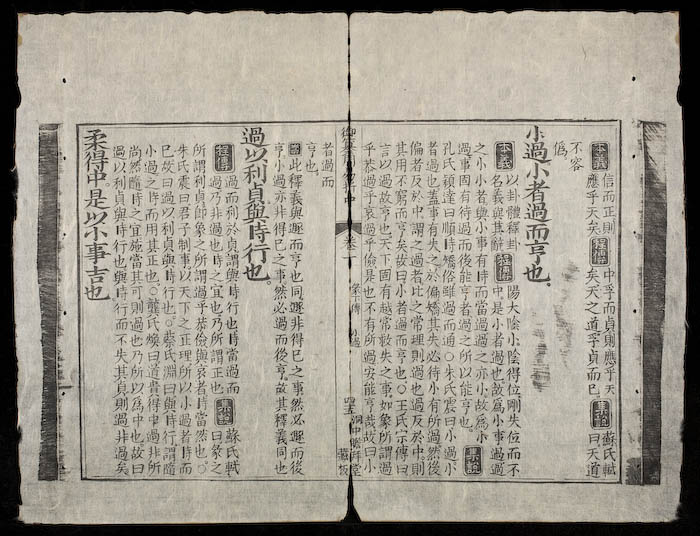 本義 信而正則
應乎天矣
程傳 中孚而貞則應乎天
矣天之道孚貞而已
集說 蘇氏軾
曰天道
不容
僞
小過小者過而亨也
本義 以卦體釋卦
名義與其辭
程傳 陽大陰小陰得位剛失位而不
中是小者過也故爲小事過過
之小小者與小事有時而當過過之亦小故爲小
過事固有待過而後能亨者過之所以能亨也 集說
孔氏穎達曰順時矯俗雖過而通○朱氏震曰小過小
者過也蓋事有失之於偏矯其失必待小有所過然後
偏者反於中謂之過者比之常理則過也過反於中則
其用不窮而亨矣故曰小者過而亨也○王氏宗傳曰
言以過故亨也天下固有越常救失之事如象所謂過
乎恭過乎哀過乎儉是也不有所過安能亨哉故曰小
卷十
者過而
亨也
案 此釋義與遯而亨也同遯非得已之事然必遯而後
亨小過亦非得已之事然必過而後亨故其釋義同也
過以利貞與時行也
程傳 過而利於貞謂與時行也時當過而
過乃非過也時之宜也乃所謂正也
集說 蘇氏軾
曰彖之
所謂利貞卽象之所謂過乎恭儉與哀者時當然也○
朱氏震曰君子制事以天下之正理所以小過者時而
已故曰過以利貞與時行也○蔡氏淵曰與時行謂隨
小過之時而用其正也○龔氏煥曰道貴得中過非所
尚然隨時之宜施當其可則過也乃所以爲中也故曰
過以利貞與時行也與時行而不失其貞則過非過矣
柔得中是以小事吉也